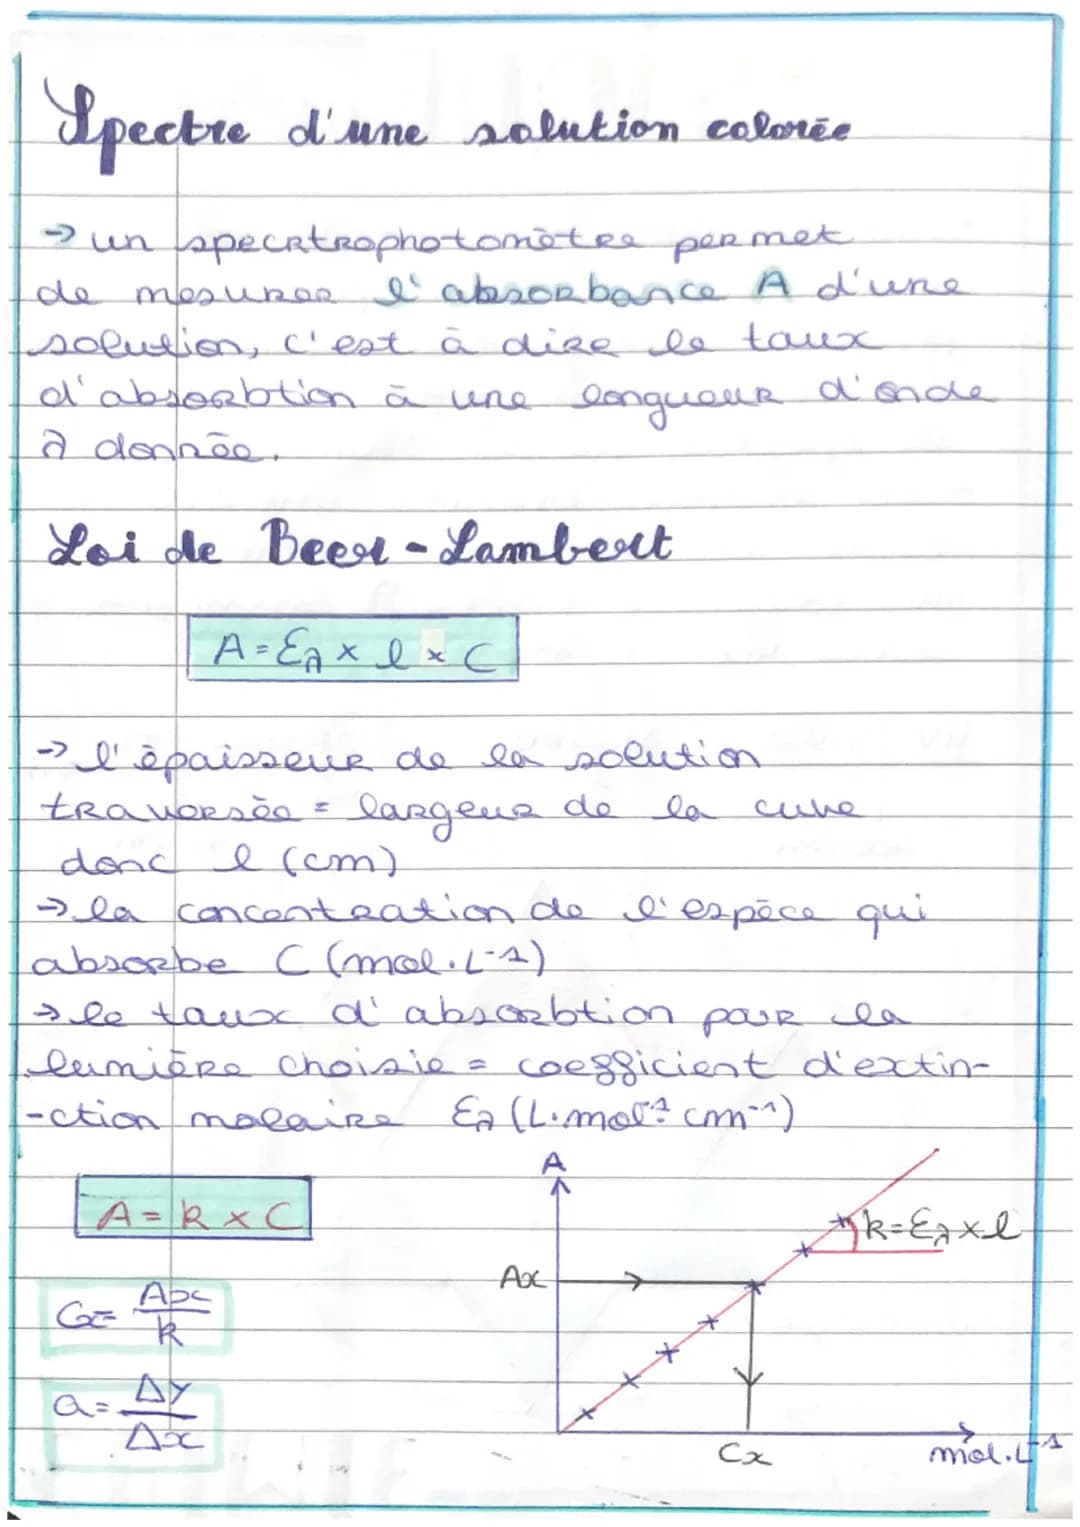 Spectre d'une solution colorée
→ un specrtrophotomètre permet
de mesurer l'absorbance A d'une
solution, c'est à dire le taux
d'absorbtion à une longueur d'onde
λ donnée.
Loi de Beer-Lambert
A = Ελ × l × C
→ l'épaisseur de la solution
traversée = largeur de la cuve
donc l (cm)
→ la concentration de l'espèce qui
absorbe C (mol.L⁻¹)
→ le taux d'absorbtion pour la
lumière choisie = coefficient d'extin-
-ction molaire Ελ (L.mol⁻¹ cm⁻¹)
A = k × C
Cx = Ax/k
a = Δy/Δx
A
k = Ελ × l
Ax
Cx
mol.L⁻¹